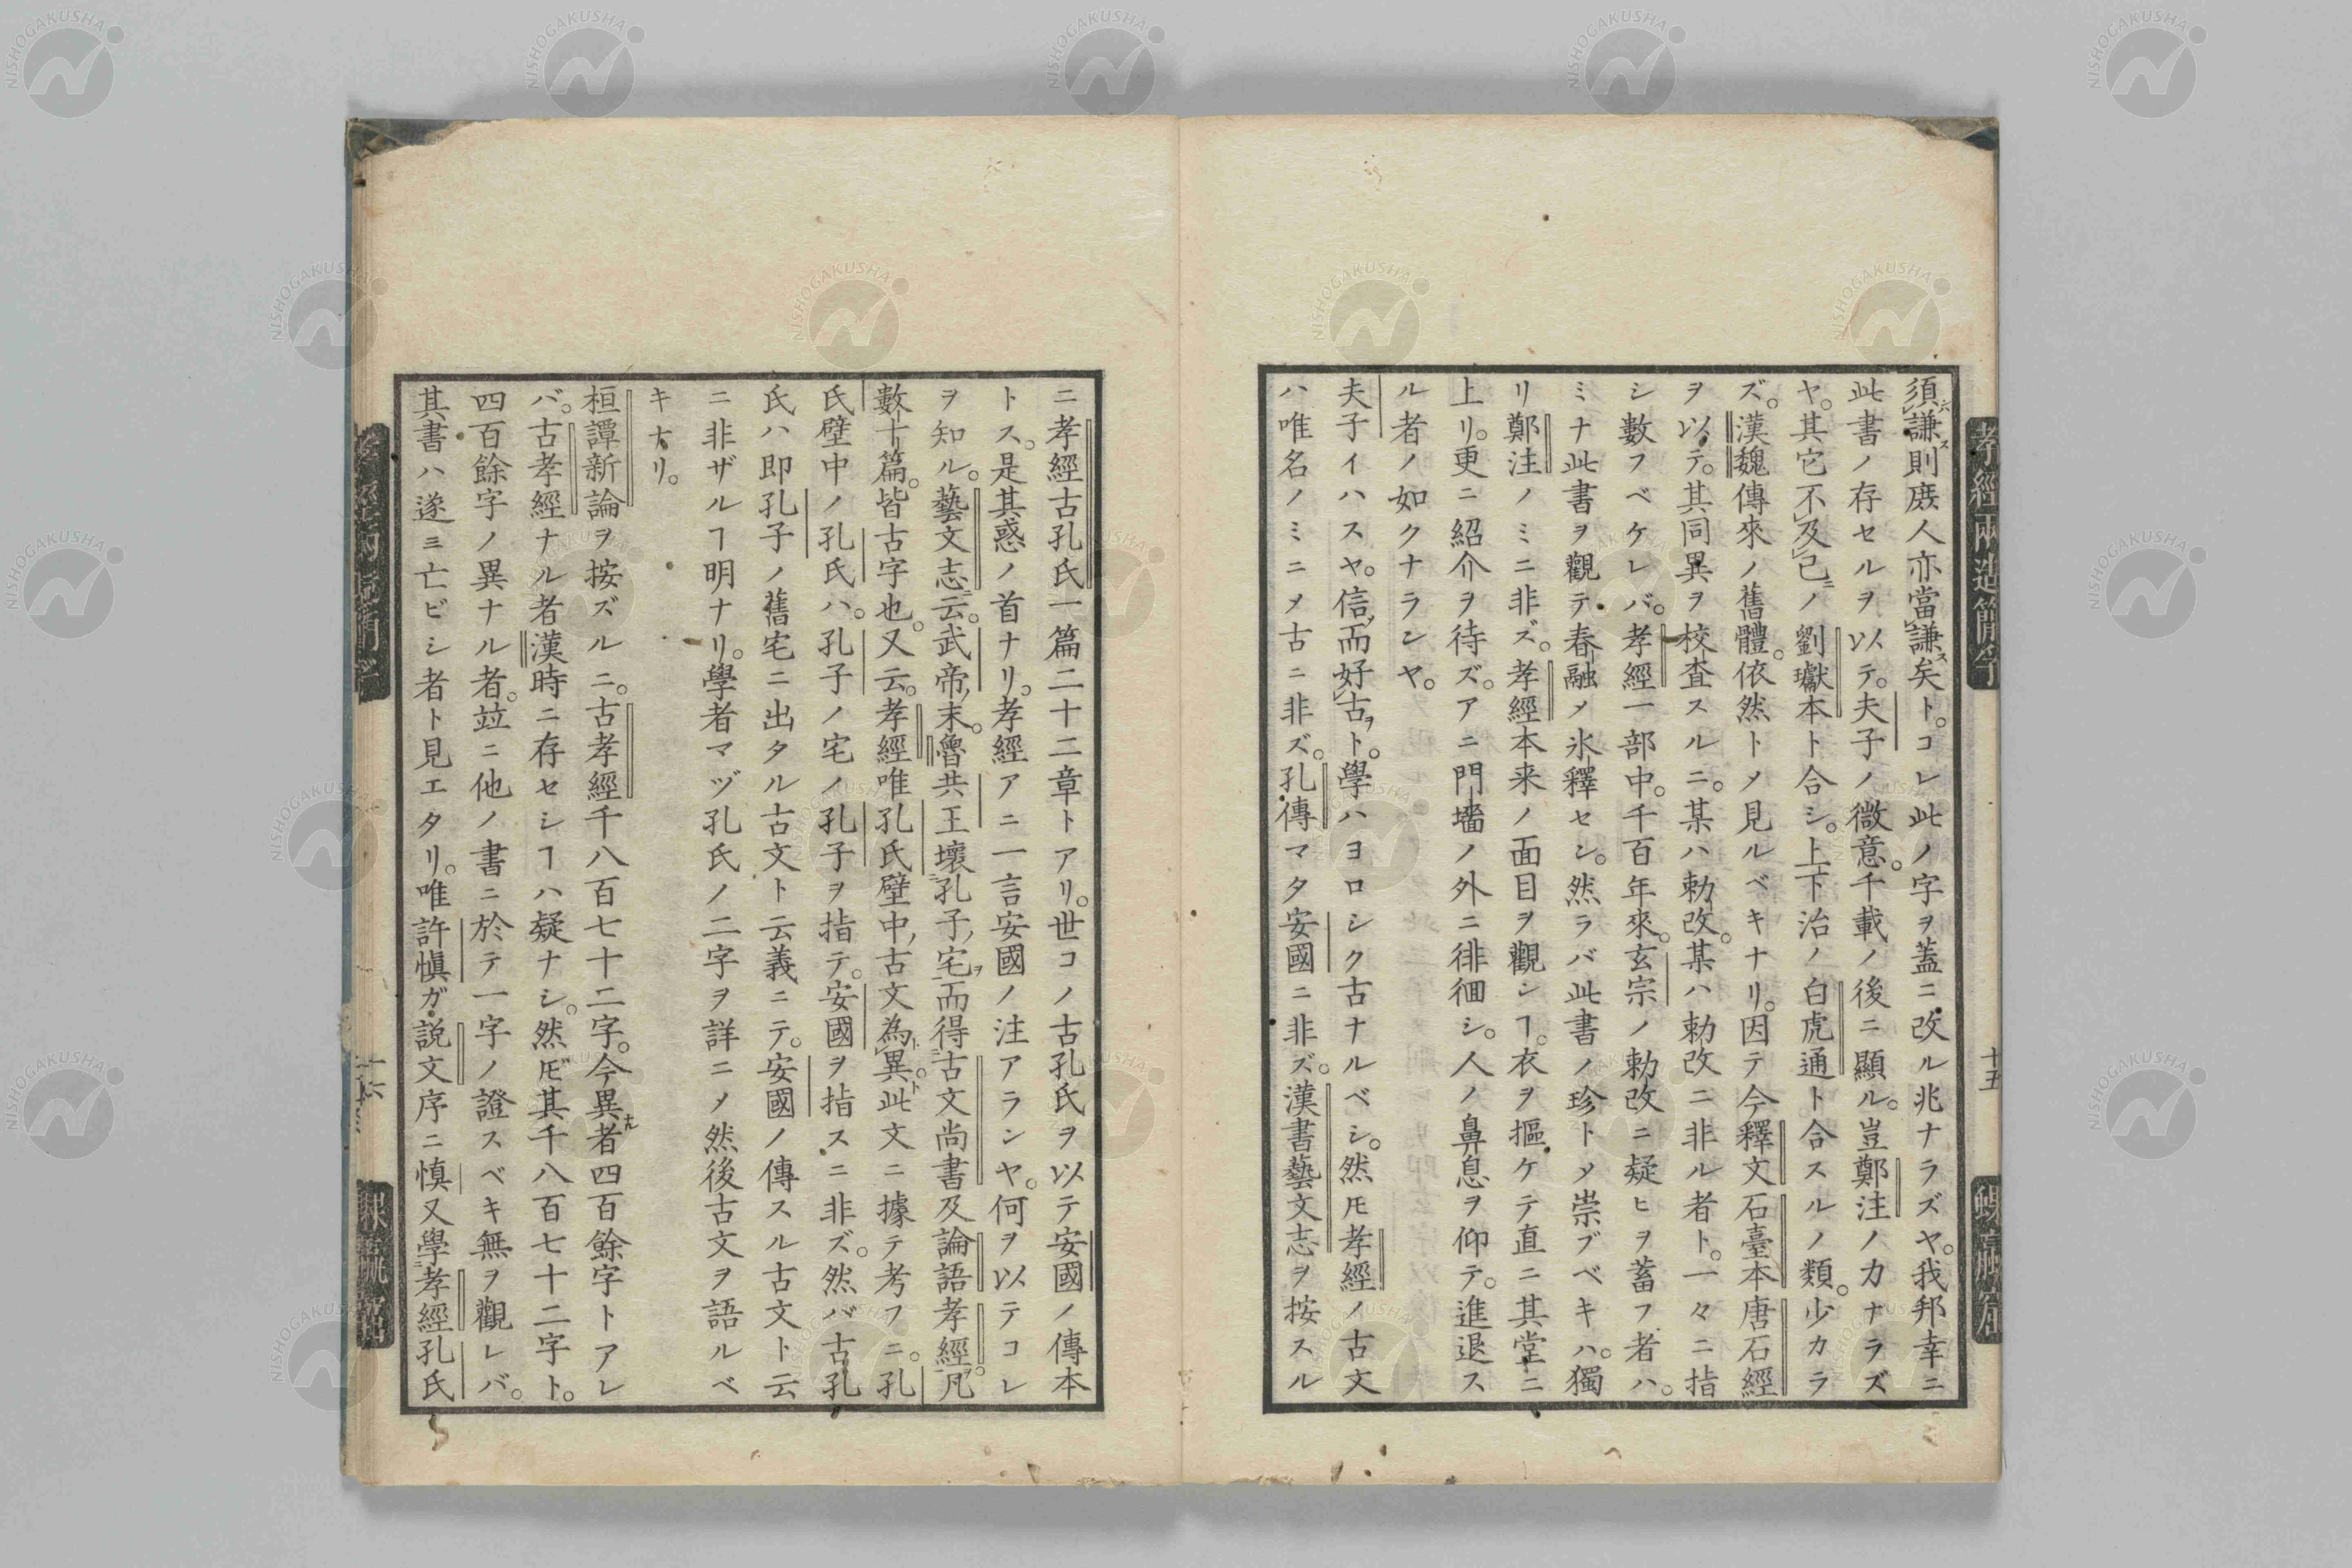 須謙則庻人亦當謙矣ト。コレ此ノ字ヲ蓋ニ改ル兆ナラズヤ。我邦幸ニ
此書ノ存セルヲ以テ。夫子ノ微意。千載ノ後ニ顯ル。豈鄭注ノ力ナラズ
ヤ。其它不及己ノ劉瓛本ト合シ。上下治ノ白虎通ト合スルノ類。少カラ
ズ。漢魏傳來ノ舊體。依然トメ見ルベキナリ。因テ今釋文石臺本唐石經
ヲ以テ。其同異ヲ校査スルニ。某ハ勅改。某ハ勅改ニ非ル者ト。一々ニ指
シ數フベケレバ。孝經一部中。千百年來。玄宗ノ勅改ニ疑ヒヲ蓄フ者ハ。
ミナ此書ヲ觀テ春融メ氷釋セシ。然ラバ此書ノ珍トメ崇ブベキハ。獨
リ鄭注ノミニ非ズ。孝經本来ノ面目ヲ觀シヿ。衣ヲ摳ケテ直ニ其堂ニ
上リ。更ニ紹介ヲ待ズ。アニ門墻ノ外ニ徘徊シ。人ノ鼻息ヲ仰テ。進退ス
ル者ノ如クナランヤ。
夫子イハスヤ。信而好古ト。學ハヨロシク古ナルベシ。然𪜈孝經ノ古文
ハ唯名ノミニメ古ニ非ズ。孔傳マタ安國ニ非ズ。漢書藝文志ヲ按スル
孝經兩造簡孚
十五
ニ孝經古孔氏一篇二十二章トアリ。世コノ古孔氏ヲ以テ安國ノ傳本
トス。是其惑ノ首ナリ。孝經アニ一言安國ノ注アランヤ。何ヲ以テコレ
ヲ知ル。藝文志云。武帝末。魯共王壞孔子宅而得古文尚書及論語孝經。凡
數十篇。皆古字也。又云。孝經唯孔氏壁中古文為異。此文ニ據テ考フニ。孔
氏壁中ノ孔氏ハ。孔子ノ宅ノ孔子ヲ指テ。安國ヲ指スニ非ズ。然バ古孔
氏ハ即孔子ノ舊宅ニ出タル古文ト云義ニテ。安國ノ傳スル古文ト云
ニ非ザルヿ明ナリ。學者マヅ孔氏ノ二字ヲ詳ニメ然後古文ヲ語ルベ
キナリ。
桓譚新論ヲ按ズルニ。古孝經千八百七十二字。今異者四百餘字トアレ
バ。古孝經ナル者漢時ニ存セシヿハ疑ナシ。然𪜈其千八百七十二字ト。
四百餘字ノ異ナル者。竝ニ他ノ書ニ於テ一字ノ證スベキ無ヲ觀レバ。
其書ハ遂ニ亡ビシ者ト見エタリ。唯許愼ガ説文序ニ慎又學孝經孔氏